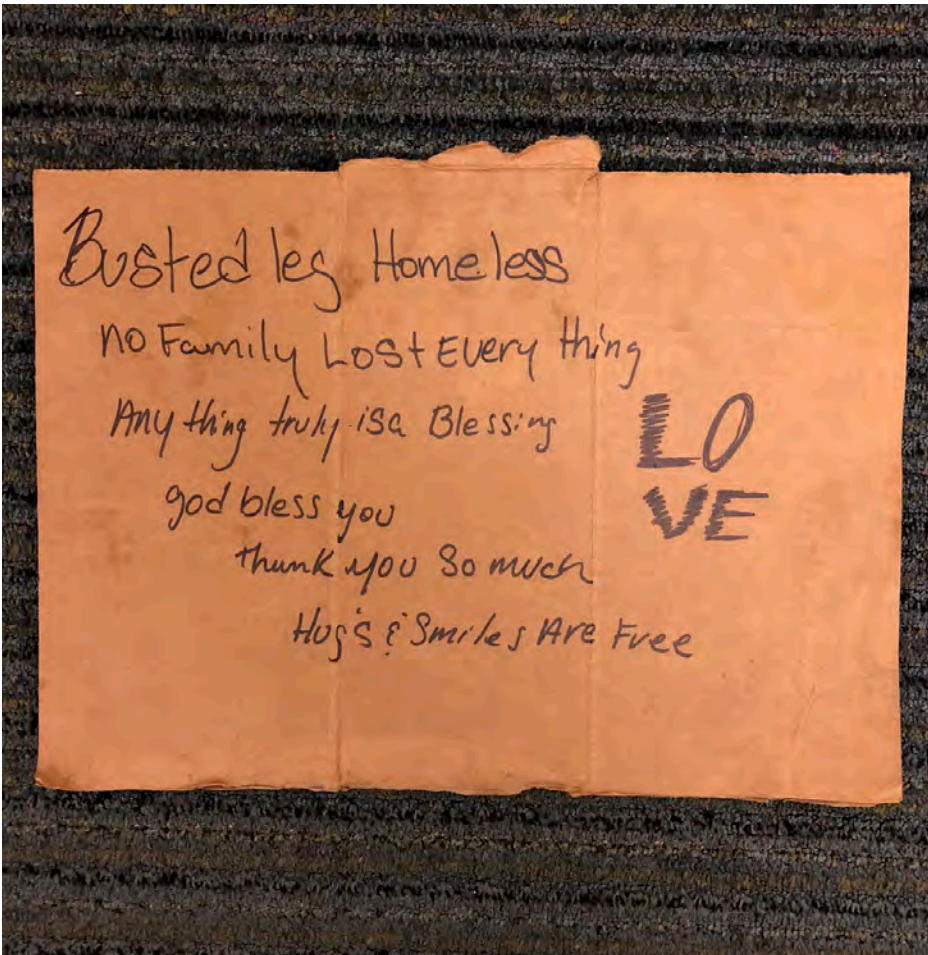 Busted leg Homeless
no Family Lost Every thing
Any thing truly is a Blessing
god bless you
thank you so much
Hug's & Smiles Are Free
LO
VE